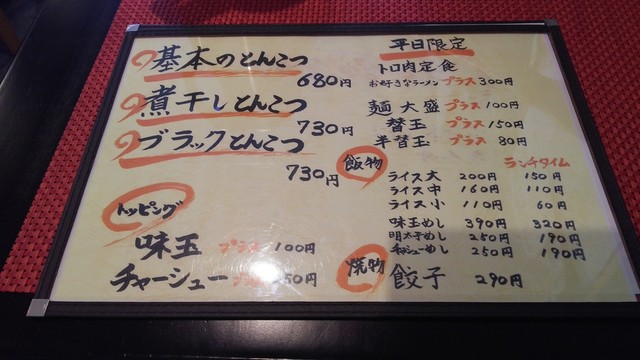 基本のとんこつ
680円
煮干しとんこつ
730円
ブラックとんこつ
730円
トッピング
味玉 プラス 100円
チャーシュー 50円
平日限定
トロ肉定食
お好きなラーメン プラス 300円
麺大盛 プラス 100円
替玉 プラス 150円
半替玉 プラス 80円
飯物
ランチタイム
ライス大 200円 150円
ライス中 160円 110円
ライス小 110円 60円
味玉めし 390円 320円
明太子めし 250円 190円
チャーシューめし 250円 190円
焼物
餃子 290円